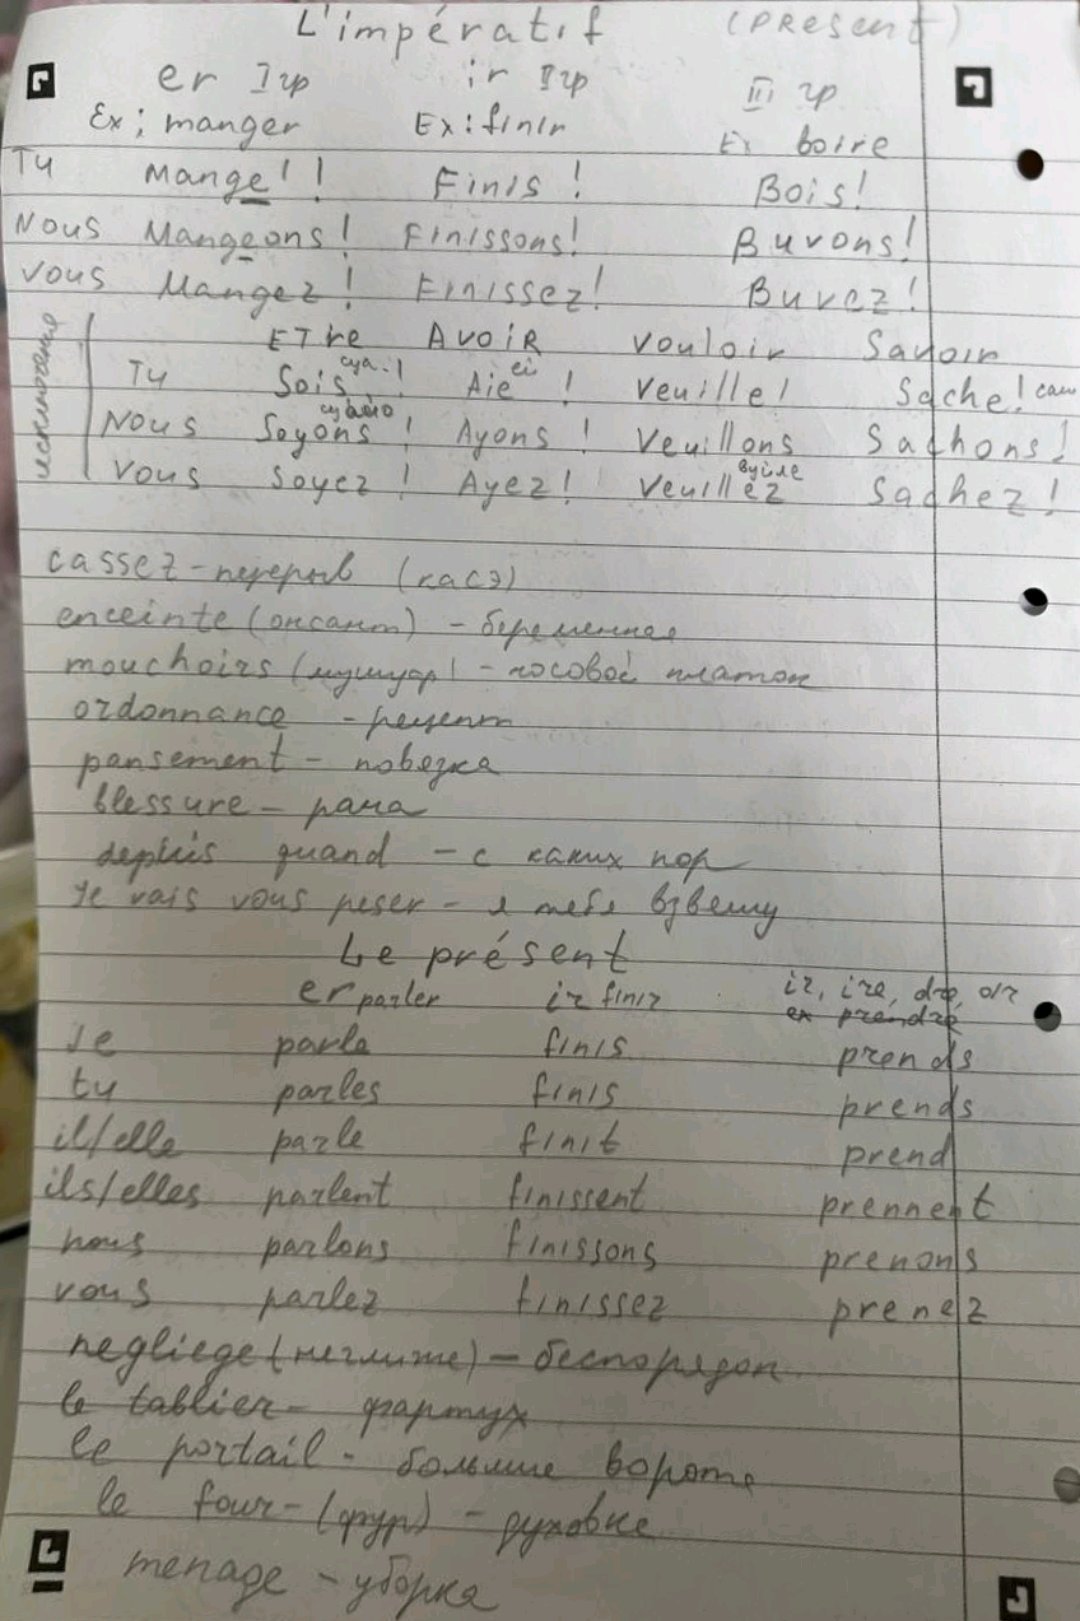 L'impératif (present)
er I гр ir II гр III гр
Ex: manger Ex: finir Ex boire
Tu Mange!! Finis! Bois!
Nous Mangeons! Finissons! Buvons!
Vous Mangez! Finissez! Buvez!
исключения
ETre AvoiR vouloir Savoir
Tu Sois! Aie! Veuille! Sache!
Nous Soyons! Ayons! Veuillons Sachons!
Vous Soyez! Ayez! Veuillez Sachez!
cassez - перерыв (касэ)
enceinte (онсант) - беременная
mouchoirs (мушуар) - носовой платок
ordonnance - рецепт
pansement - повязка
blessure - рана
depuis quand - с каких пор
Je vais vous peser - я тебя взвешу
Le présent
er parler ir finir ir, ire, dre, oir
ex prendre
Je parle finis prends
tu parles finis prends
il/elle parle finit prend
ils/elles parlent finissent prennent
nous parlons finissons prenons
vous parlez finissez prenez
negliege (неглиже) - беспорядок
le tablier - фартук
le portail - большие ворота
le four - (фур) - духовка
menage - уборка